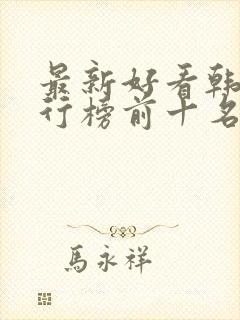 最新好看韩
行榜前十名
馬永祥